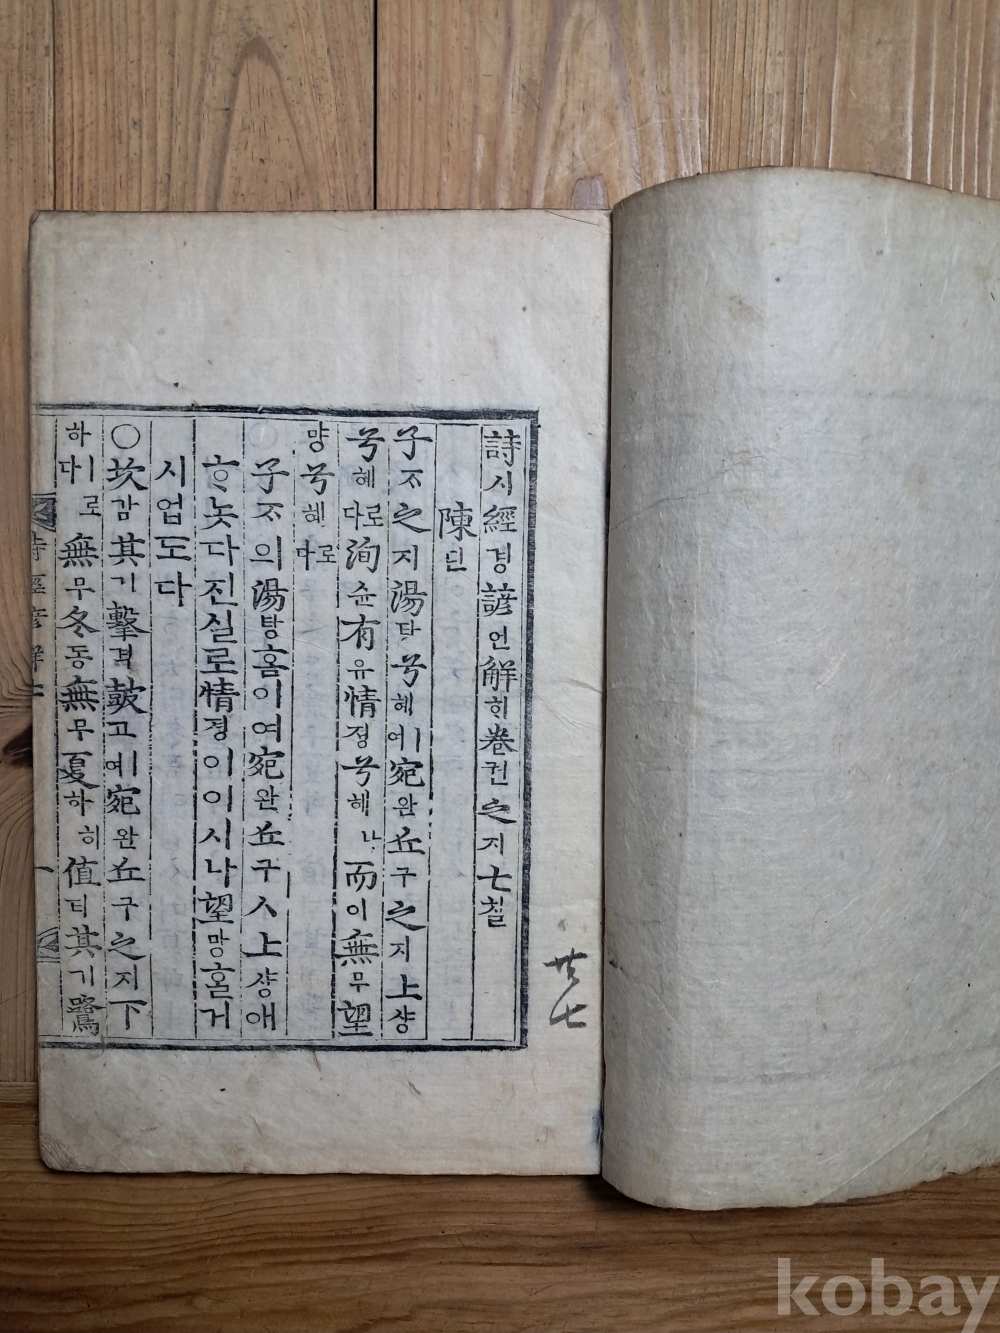 詩시經경諺언解ᄒᆡ卷권之지七칠
陳딘
子ᄌᆞ之지湯탕兮혜ㅣ여宛완丘구之지上샹
兮혜로다洵슌有유情졍兮혜나而이無무望
망兮혜로다
子ᄌᆞ의湯탕홈이여宛완丘구人上샹애
ᄒᆞ놋다진실로情졍이이시나望망홀거
시업도다
○坎감其기擊격鼓고ㅣ여宛완丘구之지下
하ㅣ로다無무冬동無무夏하히値티其기鷺
廿七
kobay